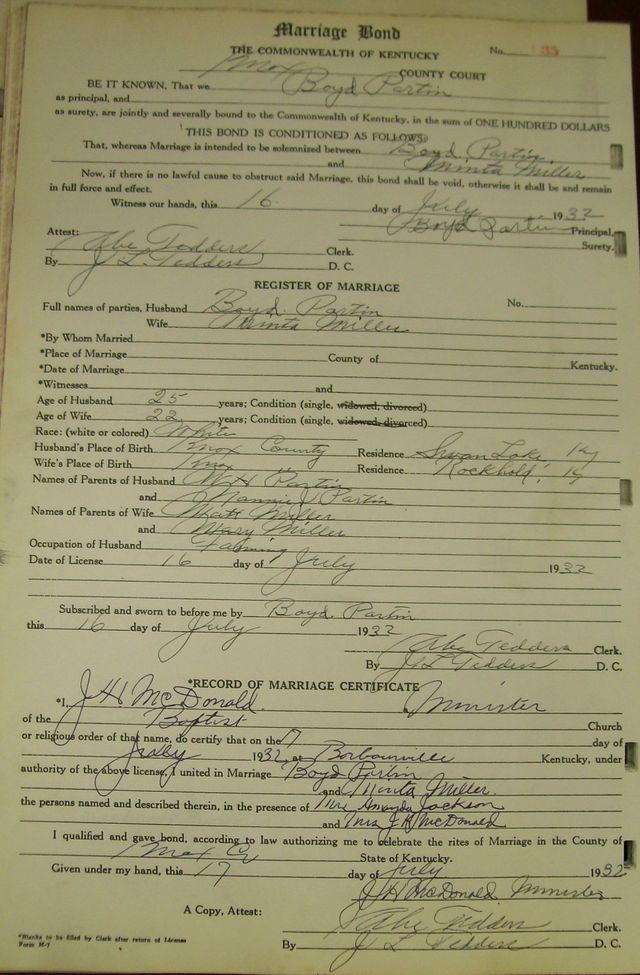 Marriage Bond
THE COMMONWEALTH OF KENTUCKY No. 35
Knox COUNTY COURT
BE IT KNOWN, That we Boyd Partin
as principal, and
as surety, are jointly and severally bound to the Commonwealth of Kentucky, in the sum of ONE HUNDRED DOLLARS
THIS BOND IS CONDITIONED AS FOLLOWS:
That, whereas Marriage is intended to be solemnized between Boyd Partin
and Minta Miller
Now, if there is no lawful cause to obstruct said Marriage, this bond shall be void, otherwise it shall be and remain
in full force and effect.
Witness our hands, this 16 day of July 1932
Boyd Partin Principal,
Surety.
Attest:
Abe Tedders Clerk.
By J L Tedders D. C.
REGISTER OF MARRIAGE
Full names of parties, Husband Boyd Partin No.
Wife Minta Miller
*By Whom Married
*Place of Marriage County of Kentucky.
*Date of Marriage
*Witnesses and
Age of Husband 25 years; Condition (single, widowed, divorced)
Age of Wife 22 years; Condition (single, widowed, divorced)
Race: (white or colored) White
Husband's Place of Birth Knox County Residence Swan Lake Ky
Wife's Place of Birth Knox " Residence Rockhold, Ky
Names of Parents of Husband W H Partin
and Nannie J Partin
Names of Parents of Wife Matt Miller
and Mary Miller
Occupation of Husband Farming
Date of License 16 day of July 1932
Subscribed and sworn to before me by Boyd Partin
this 16 day of July 1932
Abe Tedders Clerk.
By J L Tedders D. C.
*RECORD OF MARRIAGE CERTIFICATE
*I, J H McDonald a Minister
of the Baptist Church
or religious order of that name, do certify that on the 17 day of
July 1932, at Barbourville Kentucky, under
authority of the above license, I united in Marriage Boyd Partin
and Minta Miller
the persons named and described therein, in the presence of Mrs Amanda Jackson
and Mrs J H McDonald
I qualified and gave bond, according to law authorizing me to celebrate the rites of Marriage in the County of
Knox Co State of Kentucky.
Given under my hand, this 17 day of July 1932
J H McDonald, Minister
A Copy, Attest: Abe Tedders Clerk.
By J L Tedders D. C.
*Blanks to be filled by Clerk after return of License
Form M-7